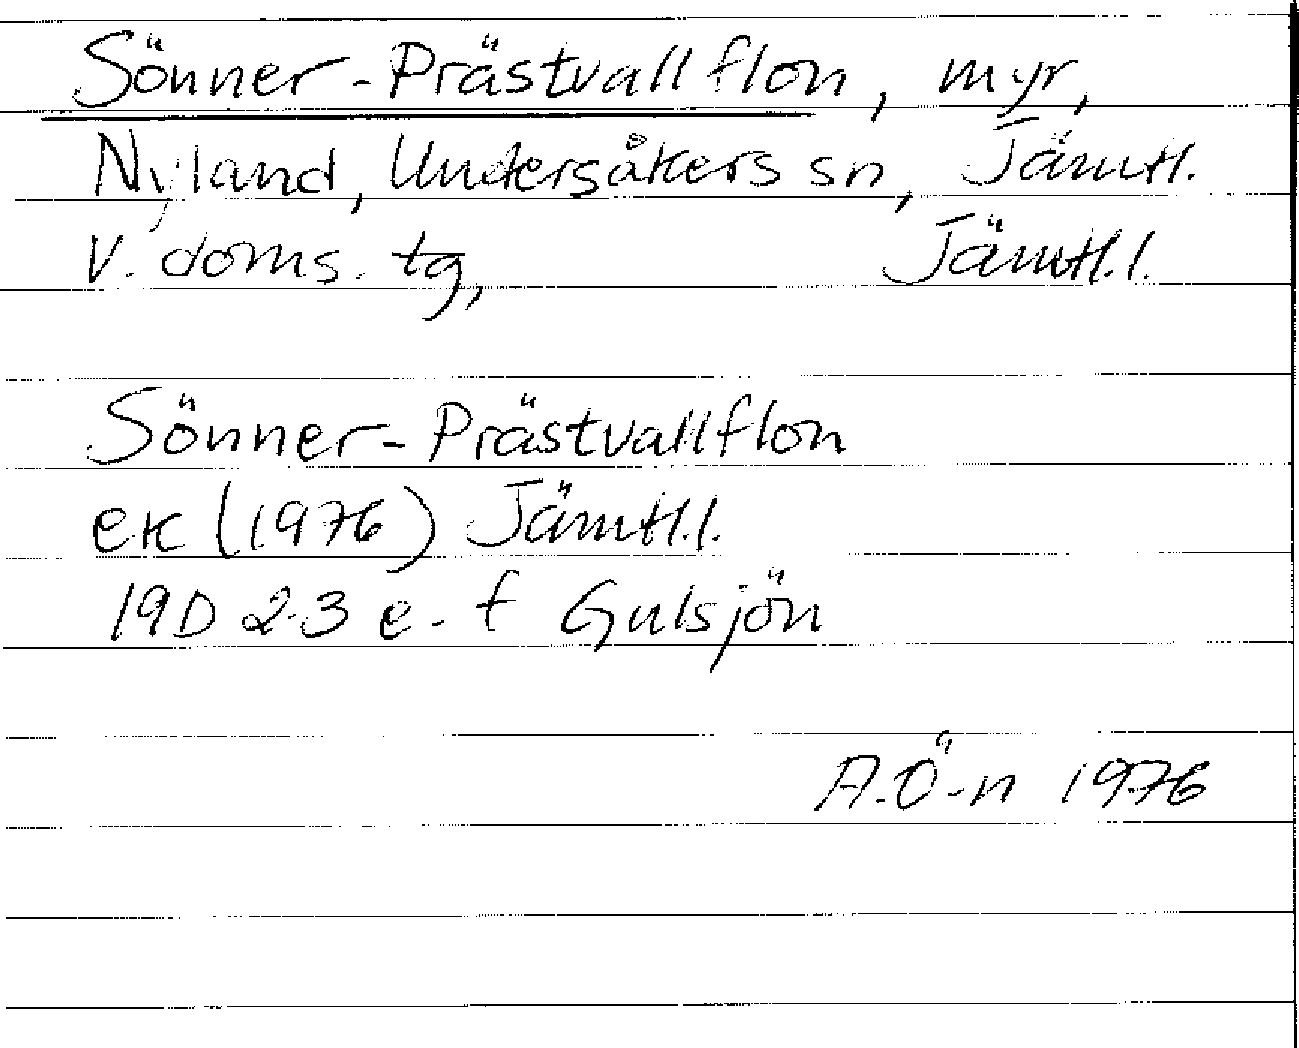 Sönner-Prästvallflon, myr,
Nyland, Undersåkers sn, Jämtl.
V. doms. tg, Jämtl.l.
Sönner-Prästvallflon
ek (1976) Jämtl.l.
19D 2-3 e-f Gulsjön
A.Ö-n 1976